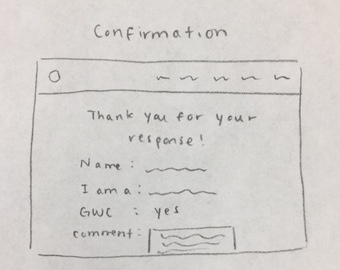 Confirmation
Thank you for your
response!
Name:
I am a:
GWC : yes
comment: